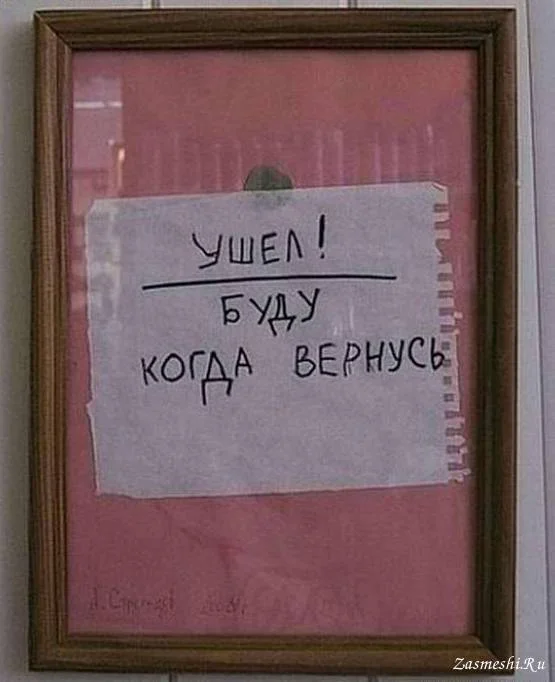 УШЕЛ!
БУДУ
КОГДА ВЕРНУСЬ
Zasmeshi.Ru